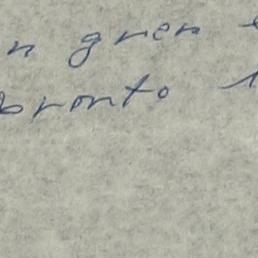 n gren
oronto